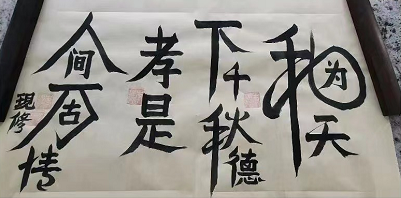 和为天
下千秋德
孝是
人间万古情